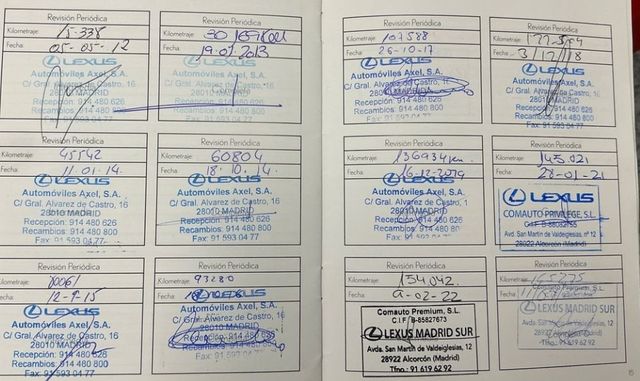 Revisión Periódica
Kilometraje: 15-338
Fecha: 05-05-12
LEXUS
Automóviles Axel, S.A.
C/ Gral. Alvarez de Castro, 16
28010 MADRID
Recepción: 914 480 626
Recambios: 914 480 800
Fax: 91 593 04 77
Revisión Periódica
Kilometraje: 30
Fecha: 19.01.2013
LEXUS
Automóviles Axel, S.A.
C/ Gral. Alvarez de Castro, 16
28010
Recepción: 914 480 626
Recambios: 914 480 800
Fax: 91 593 04 77
Revisión Periódica
Kilometraje: 45542
Fecha: 11.01.14.
LEXUS
Automóviles Axel, S.A.
C/ Gral. Alvarez de Castro, 16
28010 MADRID
Recepción: 914 480 626
Recambios: 914 480 800
Fax: 91 593 04 77
Revisión Periódica
Kilometraje: 60804
Fecha: 18.10.14.
LEXUS
Automóviles Axel, S.A.
C/ Gral. Alvarez de Castro, 16
28010 MADRID
Recepción: 914 480 626
Recambios: 914 480 800
Fax: 91 593 04 77
Revisión Periódica
Kilometraje:
Fecha: 12-9-15
LEXUS
Automóviles Axel, S.A.
C/ Gral. Alvarez de Castro, 16
28010 MADRID
Recepción: 914 480 626
Recambios: 914 480 800
Fax: 91 593 04 77
Revisión Periódica
Kilometraje: 93280
Fecha:
LEXUS
Automóviles Axel, S.A.
C/ Gral. Alvarez de Castro, 16
28010 MADRID
Recepción: 914 480 626
Recambios: 914 480 800
Fax: 91 593 04 77
Revisión Periódica
Kilometraje: 107588
Fecha: 26-10-17
LEXUS
Automóviles Axel, S.A.
C/ Gral. Alvarez de Castro, 16
Recepción: 914 480 626
Recambios: 914 480 800
Fax: 91 593 04 77
Revisión Periódica
Kilometraje:
Fecha: 3/12/18
LEXUS
Automóviles Axel, S.A.
C/ Gral. Alvarez de Castro, 16
28010 MADRID
Recepción: 914 480 626
Recambios: 914 480 800
Fax: 91 593 04 77
Revisión Periódica
Kilometraje: 136934 km.
Fecha: 16-12-2019
LEXUS
Automóviles Axel, S.A.
C/ Gral. Alvarez de Castro, 1
28010 MADRID
Recepción: 914 480 626
Recambios: 914 480 800
Fax: 91 593 04 77
Revisión Periódica
Kilometraje: 145.021
Fecha: 28-01-21
LEXUS
COMAUTO PRIVILEGE, S.L.
Avda. San Martin de Valdeiglesias, nº 12
28922 Alcorcón (Madrid)
Revisión Periódica
Kilometraje: 154.042.
Fecha: 9-02-22
Comauto Premium, S.L.
C.I.F. B-85827673
LEXUS MADRID SUR
Avda. San Martin de Valdeiglesias, 12
28922 Alcorcón (Madrid)
Tfno.: 91 619 62 92
Revisión Periódica
Kilometraje: 165275
Fecha:
Comauto Premium, S.L.
LEXUS MADRID SUR
Avda. San Martin de Valdeiglesias, 12
28922 Alcorcón (Madrid)
Tfno.: 91 619 62 92
15